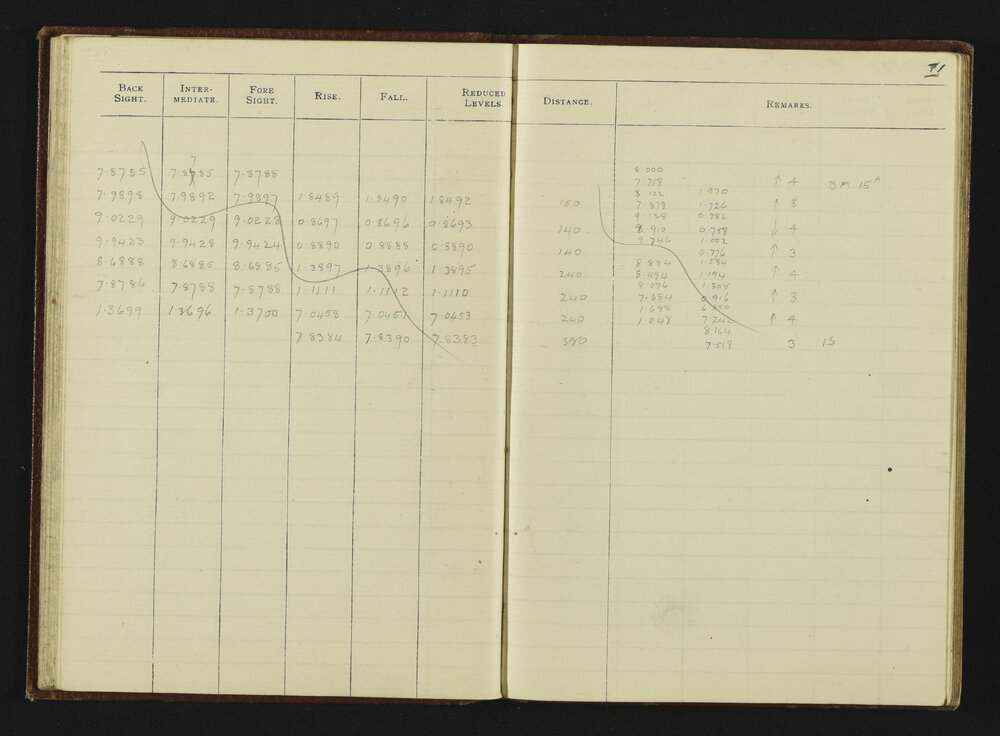 71
BACK SIGHT. INTER-MEDIATE. FORE SIGHT. RISE. FALL. REDUCED LEVELS. DISTANCE. REMARKS.
8.000
7.8785 7.8785 7.8788 7.758 ↑ 4 B.M. 15A
7
8.102 1.970
7.9898 7.9892 7.9897 1.8489 1.8490 1.8492 150 7.878 1.726 ↑ 3
9.138 0.982
9.0229 9.0229 9.0228 0.8697 0.8696 0.8693 140 8.910 0.758 ↓ 4
9.746 1.002
9.9423 9.9428 9.9424 0.8890 0.8888 0.8890 140 0.776 ↑ 3
8.884 1.584
8.6888 8.6885 8.6885 1.3897 1.3896 1.3895 240 8.494 1.194 ↑ 4
8.076 1.308
7.8786 7.8788 7.8788 1.1111 1.1112 1.1110 240 7.684 0.916 ↑ 3
1.688 6.850
1.3699 1.3696 1.3700 7.0458 7.0451 7.0453 240 1.048 7.242 ↑ 4
8.164
7.8384 7.8390 7.8383 380 7.518 3 15